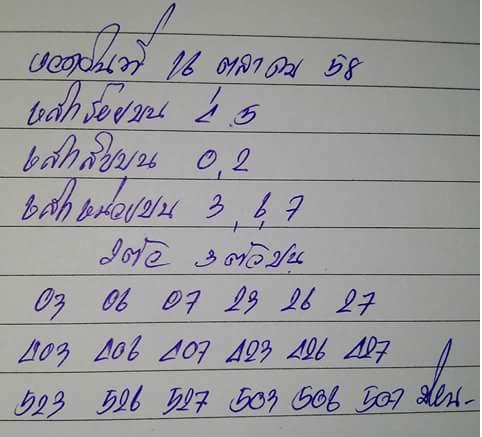 งวดวันที่ 16 ตุลาคม 58
หลักร้อยบน 4,5
หลักสิบบน 0,2
หลักหน่วยบน 3,6,7
2ตัว 3ตัวบน
03 06 07 23 26 27
403 406 407 423 426 427
523 526 527 503 506 507